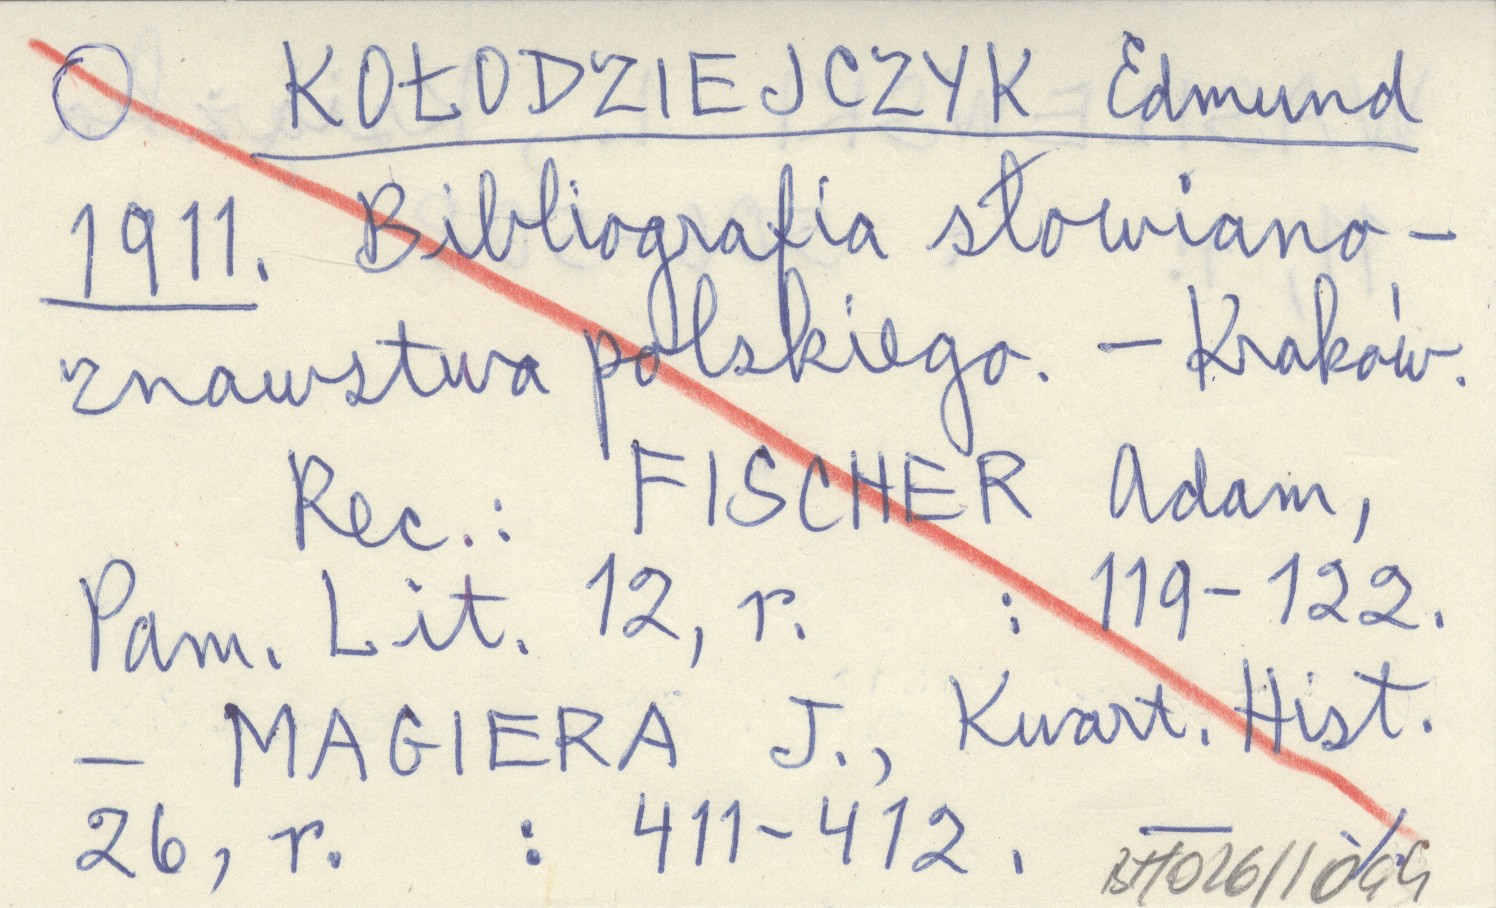 O KOŁODZIEJCZYK Edmund
1911. Bibliografia słowiano-
znawstwa polskiego. – Kraków.
Rec.: FISCHER Adam,
Pam. Lit. 12, r. : 119-122.
– MAGIERA J., Kwart. Hist.
26, r. : 411-412. – ./.